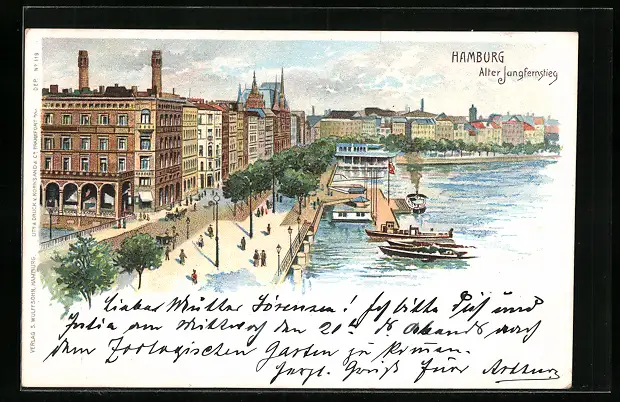 HAMBURG
Alter Jungfernstieg
DEP. Nº 119
LITH. & DRUCK V. KORNSAND & Cº FRANKFURT a/M.
VERLAG S. WULFFSOHN, HAMBURG.
Lieber Mutter Sörensen! Ich bitte Dich und
Justia am Mittwoch den 20ten d. Abends nach
dem Zoologischen Garten zu kommen.
Herzl. Gruß Euer Arthur